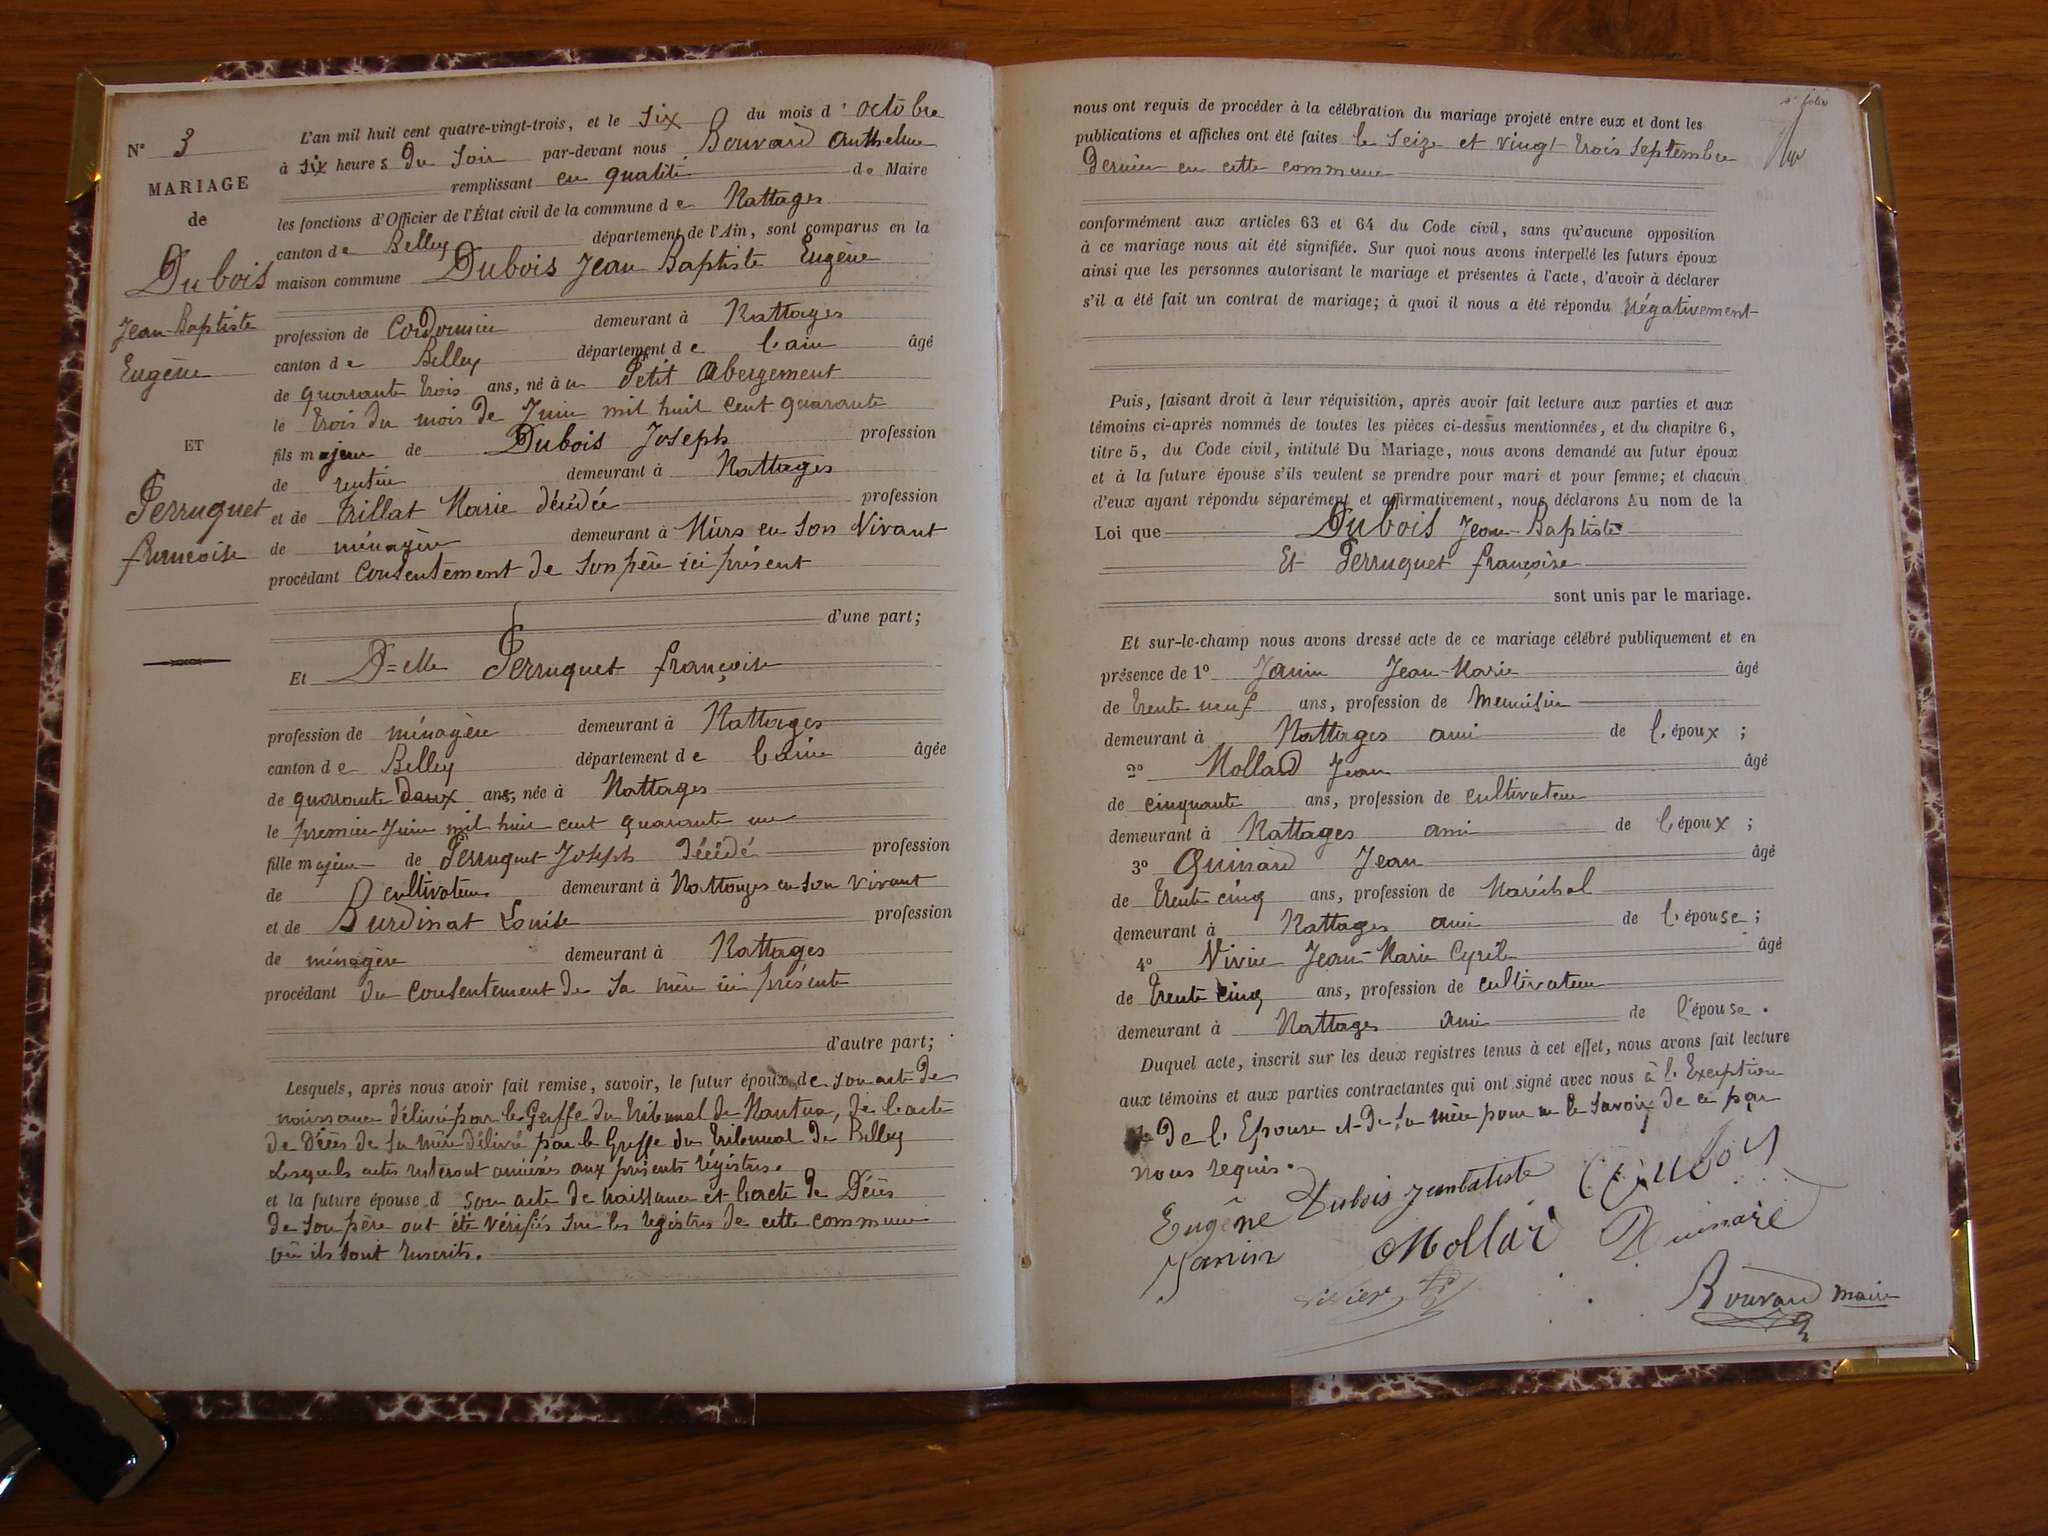 N° 3
MARIAGE
de
Dubois
Jean-Baptiste
Eugène
ET
Perruquet
françoise
L'an mil huit cent quatre-vingt-trois, et le six du mois d'octobre
à six heures du soir par-devant nous Bouvard Anthelme
remplissant en qualité de Maire
les fonctions d'Officier de l'État civil de la commune de Nattages
canton de Belley département de l'Ain, sont comparus en la
maison commune Dubois Jean Baptiste Eugène
profession de Cordonnier demeurant à Nattages
canton de Belley département de l'ain âgé
de quarante trois ans, né à u Petit Abergement
le trois du mois de Juin mil huit cent quarante
fils majeur de Dubois Joseph profession
de rentier demeurant à Nattages
et de Trillat Marie décédée profession
de ménagère demeurant à Murs en son vivant
procédant consentement de son père ici présent
d'une part;
Et D=elle Perruquet françoise
profession de ménagère demeurant à Nattages
canton de Belley département de l'ain âgée
de quarante deux ans, née à Nattages
le premier Juin mil huit cent quarante un
fille majeure de Perruquet Joseph décédé profession
de cultivateur demeurant à Nattages en son vivant
et de Burdinat Louise profession
de ménagère demeurant à Nattages
procédant du consentement de sa mère ici présente
d'autre part;
Lesquels, après nous avoir fait remise, savoir, le futur époux de son acte de
naissance délivré par le Greffe du tribunal de Nantua, de l'acte
de Décès de sa mère délivré par le Greffe du tribunal de Belley
Lesquels actes resteront annexés aux présents régistres.
et la future épouse d son acte de naissance et l'acte de Décès
de son père ont été vérifiés sur les registres de cette commune
où ils sont inscrits.
nous ont requis de procéder à la célébration du mariage projeté entre eux et dont les
publications et affiches ont été faites le seize et vingt trois Septembre
dernier en cette commune
conformément aux articles 63 et 64 du Code civil, sans qu'aucune opposition
à ce mariage nous ait été signifiée. Sur quoi nous avons interpellé les futurs époux
ainsi que les personnes autorisant le mariage et présentes à l'acte, d'avoir à déclarer
s'il a été fait un contrat de mariage; à quoi il nous a été répondu négativement
Puis, faisant droit à leur réquisition, après avoir fait lecture aux parties et aux
témoins ci-après nommés de toutes les pièces ci-dessus mentionnées, et du chapitre 6,
titre 5, du Code civil, intitulé Du Mariage, nous avons demandé au futur époux
et à la future épouse s'ils veulent se prendre pour mari et pour femme; et chacun
d'eux ayant répondu séparément et affirmativement, nous déclarons Au nom de la
Loi que Dubois Jean-Baptiste
Et Perruquet françoise
sont unis par le mariage.
Et sur-le-champ nous avons dressé acte de ce mariage célébré publiquement et en
présence de 1° Janin Jean-Marie âgé
de trente neuf ans, profession de Menuisier
demeurant à Nattages ami de l'époux ;
2° Mollard Jean âgé
de cinquante ans, profession de cultivateur
demeurant à Nattages ami de l'époux ;
3° Quinard Jean âgé
de trente cinq ans, profession de Maréchal
demeurant à Nattages ami de l'épouse ;
4° Vivier Jean-Marie Cyril âgé
de trente cinq ans, profession de cultivateur
demeurant à Nattages ami de l'épouse.
Duquel acte, inscrit sur les deux registres tenus à cet effet, nous avons fait lecture
aux témoins et aux parties contractantes qui ont signé avec nous à l'Exception
de l'Epouse et de sa mère pour ne le savoir de ce par
nous requis.
Eugène Dubois Jeanbatiste Dubois
Janin Mollard Quinard
Vivier
Bouvard maire